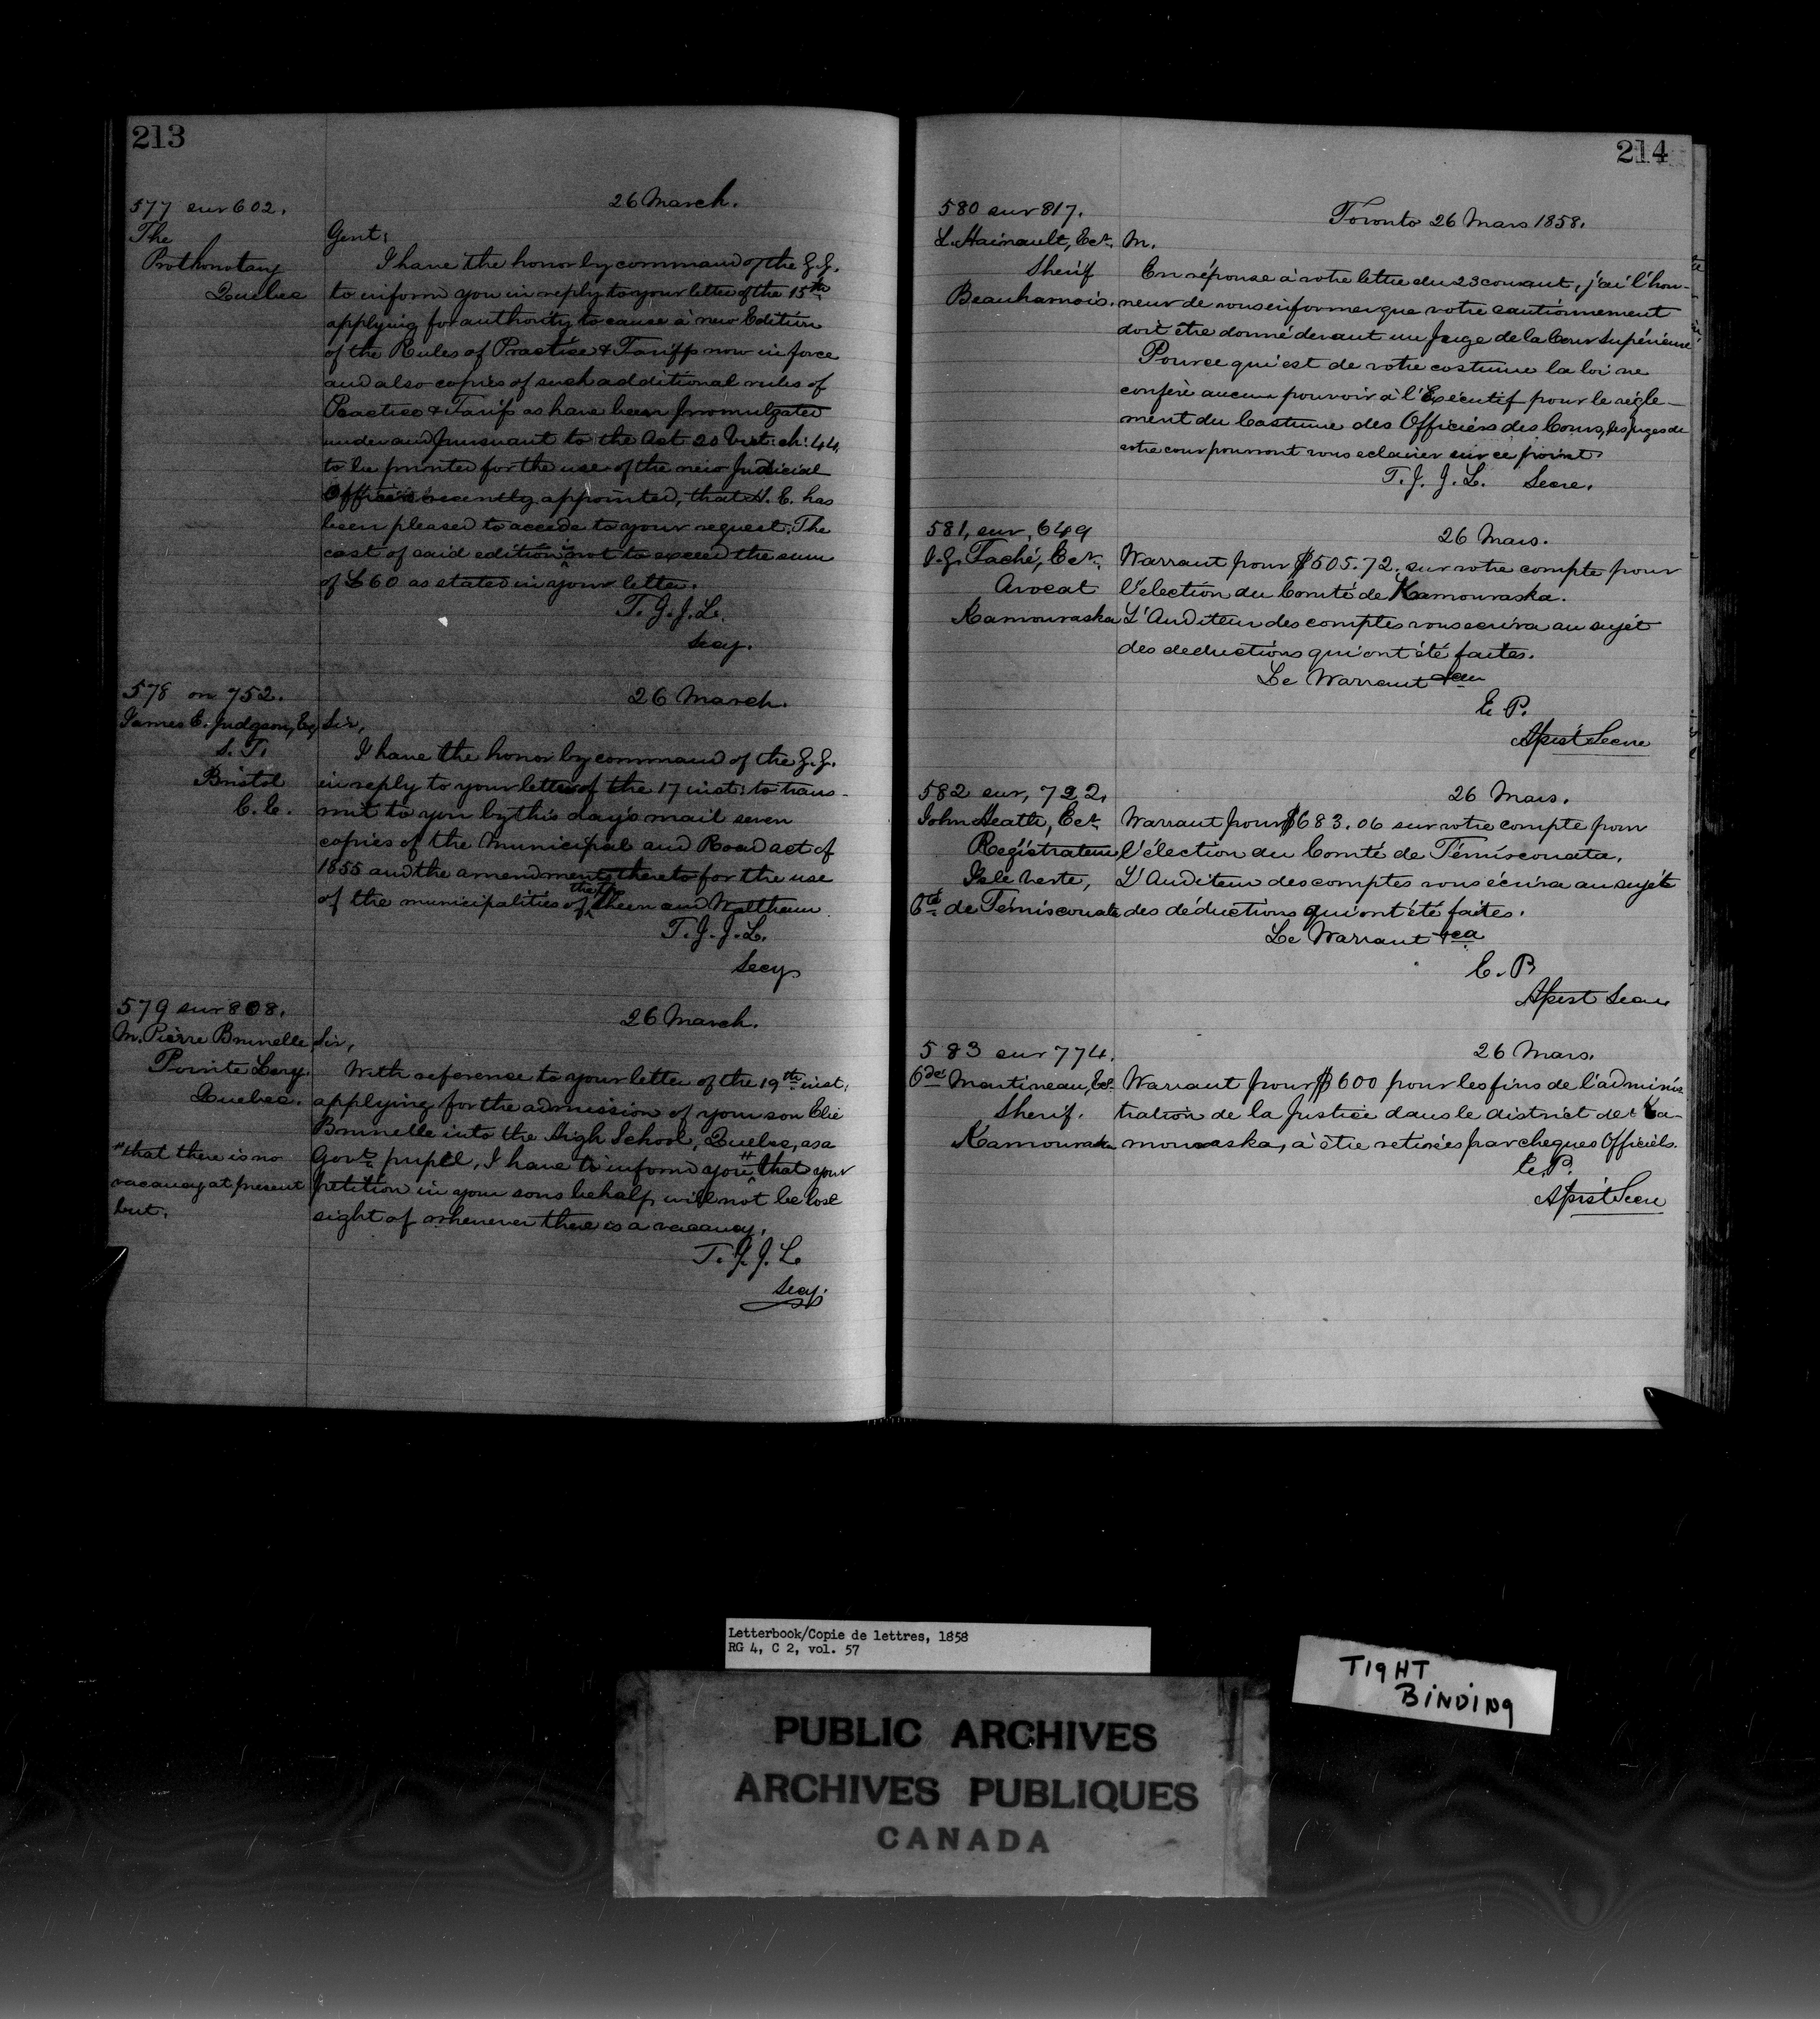 213
577 sur 602.
The
Prothonotary
Quebec
26 March.
Gent:
I have the honor by command of the G.G.
to inform you in reply to your letter of the 15th
applying for authority to cause a new Edition
of the Rules of Practice & Tariffs now in force
and also copies of such additional rules of
Practice & Tariffs as have been promulgated
under and pursuant to the Act 20 Vict: ch: 44,
to be printed for the use of the new Judicial
Officers recently appointed, that H. E. has
been pleased to accede to your request. The
cost of said edition is not to exceed the sum
of £60 as stated in your letter.
T. J. J. L.
Secy.
578 on 752.
James C. Judgson, Esq
S. T.
Bristol
C. E.
26 March.
Sir,
I have the honor by command of the G.G.
in reply to your letter of the 17 inst: to trans-
mit to you by this day's mail seven
copies of the Municipal and Road act of
1855 and the amendments thereto for the use
of the municipalities of Sheen and Waltham.
T. J. J. L.
Secy
579 sur 808.
M. Pierre Brunelle
Pointe Levy.
Quebec.
26 March.
Sir,
With reference to your letter of the 19th inst:
applying for the admission of your son Elie
Brunelle into the High School, Quebec, as a
Govt pupil, I have to inform you # that your
petition in your sons behalf, will not be lost
sight of whenever there is a vacancy.
# that there is no
vacancy at present
but.
T. J. J. L.
Secy.
214
580 sur 817.
L. Hainault, Ecr.
Sherif
Beauharnois.
Toronto 26 Mars 1858.
M.
En réponse à votre lettre du 23 courant, j'ai l'hon-
neur de vous informer que votre cautionnement
doit être donné devant un Juge de la Cour Supérieure
Pour ce qui est de votre costume la loi ne
confère aucun pouvoir à l'Exécutif pour le régle-
ment du Costume des Officiers des Cours, les juges de
votre cour pourront vous eclairer sur ce point.
T. J. J. L. Secre.
581, sur, 649
Taché, Ecr.
Avocat
Kamouraska
26 Mars.
Warrant pour $505.72. sur votre compte pour
l'élection du Comté de Kamouraska.
L'Auditeur des comptes vous ecrira au sujet
des deductions qui ont été faites.
Le Warrant
E. P.
Apist Secre
582 sur, 722.
John Heath, Ecr
Registrateur
Isle Verte,
Cté de Témiscouata
26 Mars.
Warrant pour $683.06 sur votre compte pour
l'élection du Comté de Témiscouata.
L'Auditeur des comptes vous écrira au sujet
des déductions qui ont été faites.
Le Warrant
E. P.
Apist Secre
583 sur 774.
Martineau, Ecr
Sherif.
Kamouraska
26 Mars.
Warrant pour $600 pour les fins de l'adminis
tration de la Justice dans le district de Ka-
mouraska, à être retirées par cheques Officiels.
E. P.
Apist Secre
Letterbook/Copie de lettres, 1858
RG 4, C 2, vol. 57
TIGHT
BINDING
PUBLIC ARCHIVES
ARCHIVES PUBLIQUES
CANADA